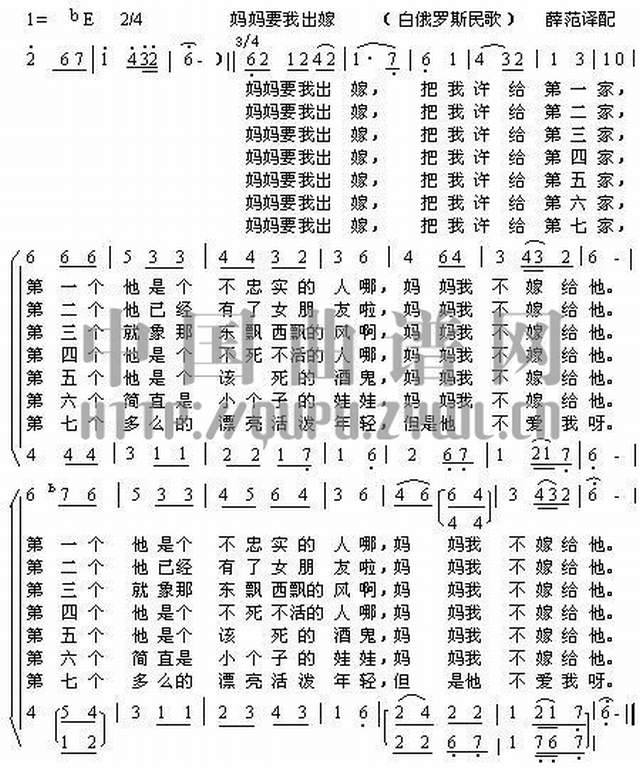 1= ᵇE 2/4 妈妈要我出嫁 （白俄罗斯民歌） 薛范译配
3/4
2 67 | 1 432 | 6 - ) || 62 1242 | 1· 7 | 6 1 | 4 32 | 1 3 | 10 |
妈妈要我出 嫁， 把 我 许 给 第 一 家，
妈妈要我出 嫁， 把 我 许 给 第 二 家，
妈妈要我出 嫁， 把 我 许 给 第 三 家，
妈妈要我出 嫁， 把 我 许 给 第 四 家，
妈妈要我出 嫁， 把 我 许 给 第 五 家，
妈妈要我出 嫁， 把 我 许 给 第 六 家，
妈妈要我出 嫁， 把 我 许 给 第 七 家，
6 6 6 | 5 3 3 | 4 4 3 2 | 3 6 | 4 64 | 3 43 2 | 6 - |
第 一 个 他 是 个 不 忠 实 的 人 哪， 妈 妈 我 不 嫁 给 他。
第 二 个 他 已 经 有 了 女 朋 友 啦， 妈 妈 我 不 嫁 给 他。
第 三 个 就 象 那 东 飘 西 飘 的 风 啊， 妈 妈 我 不 嫁 给 他。
第 四 个 他 是 个 不 死 不 活 的 人 哪， 妈 妈 我 不 嫁 给 他。
第 五 个 他 是 个 该 死 的 酒 鬼， 妈 妈 我 不 嫁 给 他。
第 六 个 简 直 是 小 个 子 的 娃 娃， 妈 妈 我 不 嫁 给 他。
第 七 个 多 么 的 漂 亮 活 泼 年 轻， 但 是 他 不 爱 我 呀。
中国曲谱网
HTTP://QUPU.ZYWL.CN
4 4 4 | 3 1 1 | 2 2 1 7 | 1 6 | 2 6 7 | 1 21 7 | 6 - |
6 ᵇ7 6 | 5 3 3 | 4 5 6 4 | 3 6 | 4 6 6 4 | 3 432 | 6 - |
4 4
第 一 个 他 是 个 不 忠 实 的 人 哪， 妈 妈 我 不 嫁 给 他。
第 二 个 他 已 经 有 了 女 朋 友 啦， 妈 妈 我 不 嫁 给 他。
第 三 个 就 象 那 东 飘 西 飘 的 风 啊， 妈 妈 我 不 嫁 给 他。
第 四 个 他 是 个 不 死 不 活 的 人 哪， 妈 妈 我 不 嫁 给 他。
第 五 个 他 是 个 该 死 的 酒 鬼， 妈 妈 我 不 嫁 给 他。
第 六 个 简 直 是 小 个 子 的 娃 娃， 妈 妈 我 不 嫁 给 他。
第 七 个 多 么 的 漂 亮 活 泼 年 轻， 但 是 他 不 爱 我 呀。
4 5 4 | 3 1 1 | 2 2 4 3 | 1 6 | 2 4 2 2 | 1 21 7 | 6 - ||
1 2 2 2 6 6 | 1 76 7